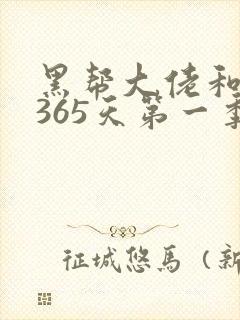 黑帮大佬和
365天第一季
征城悠馬（新